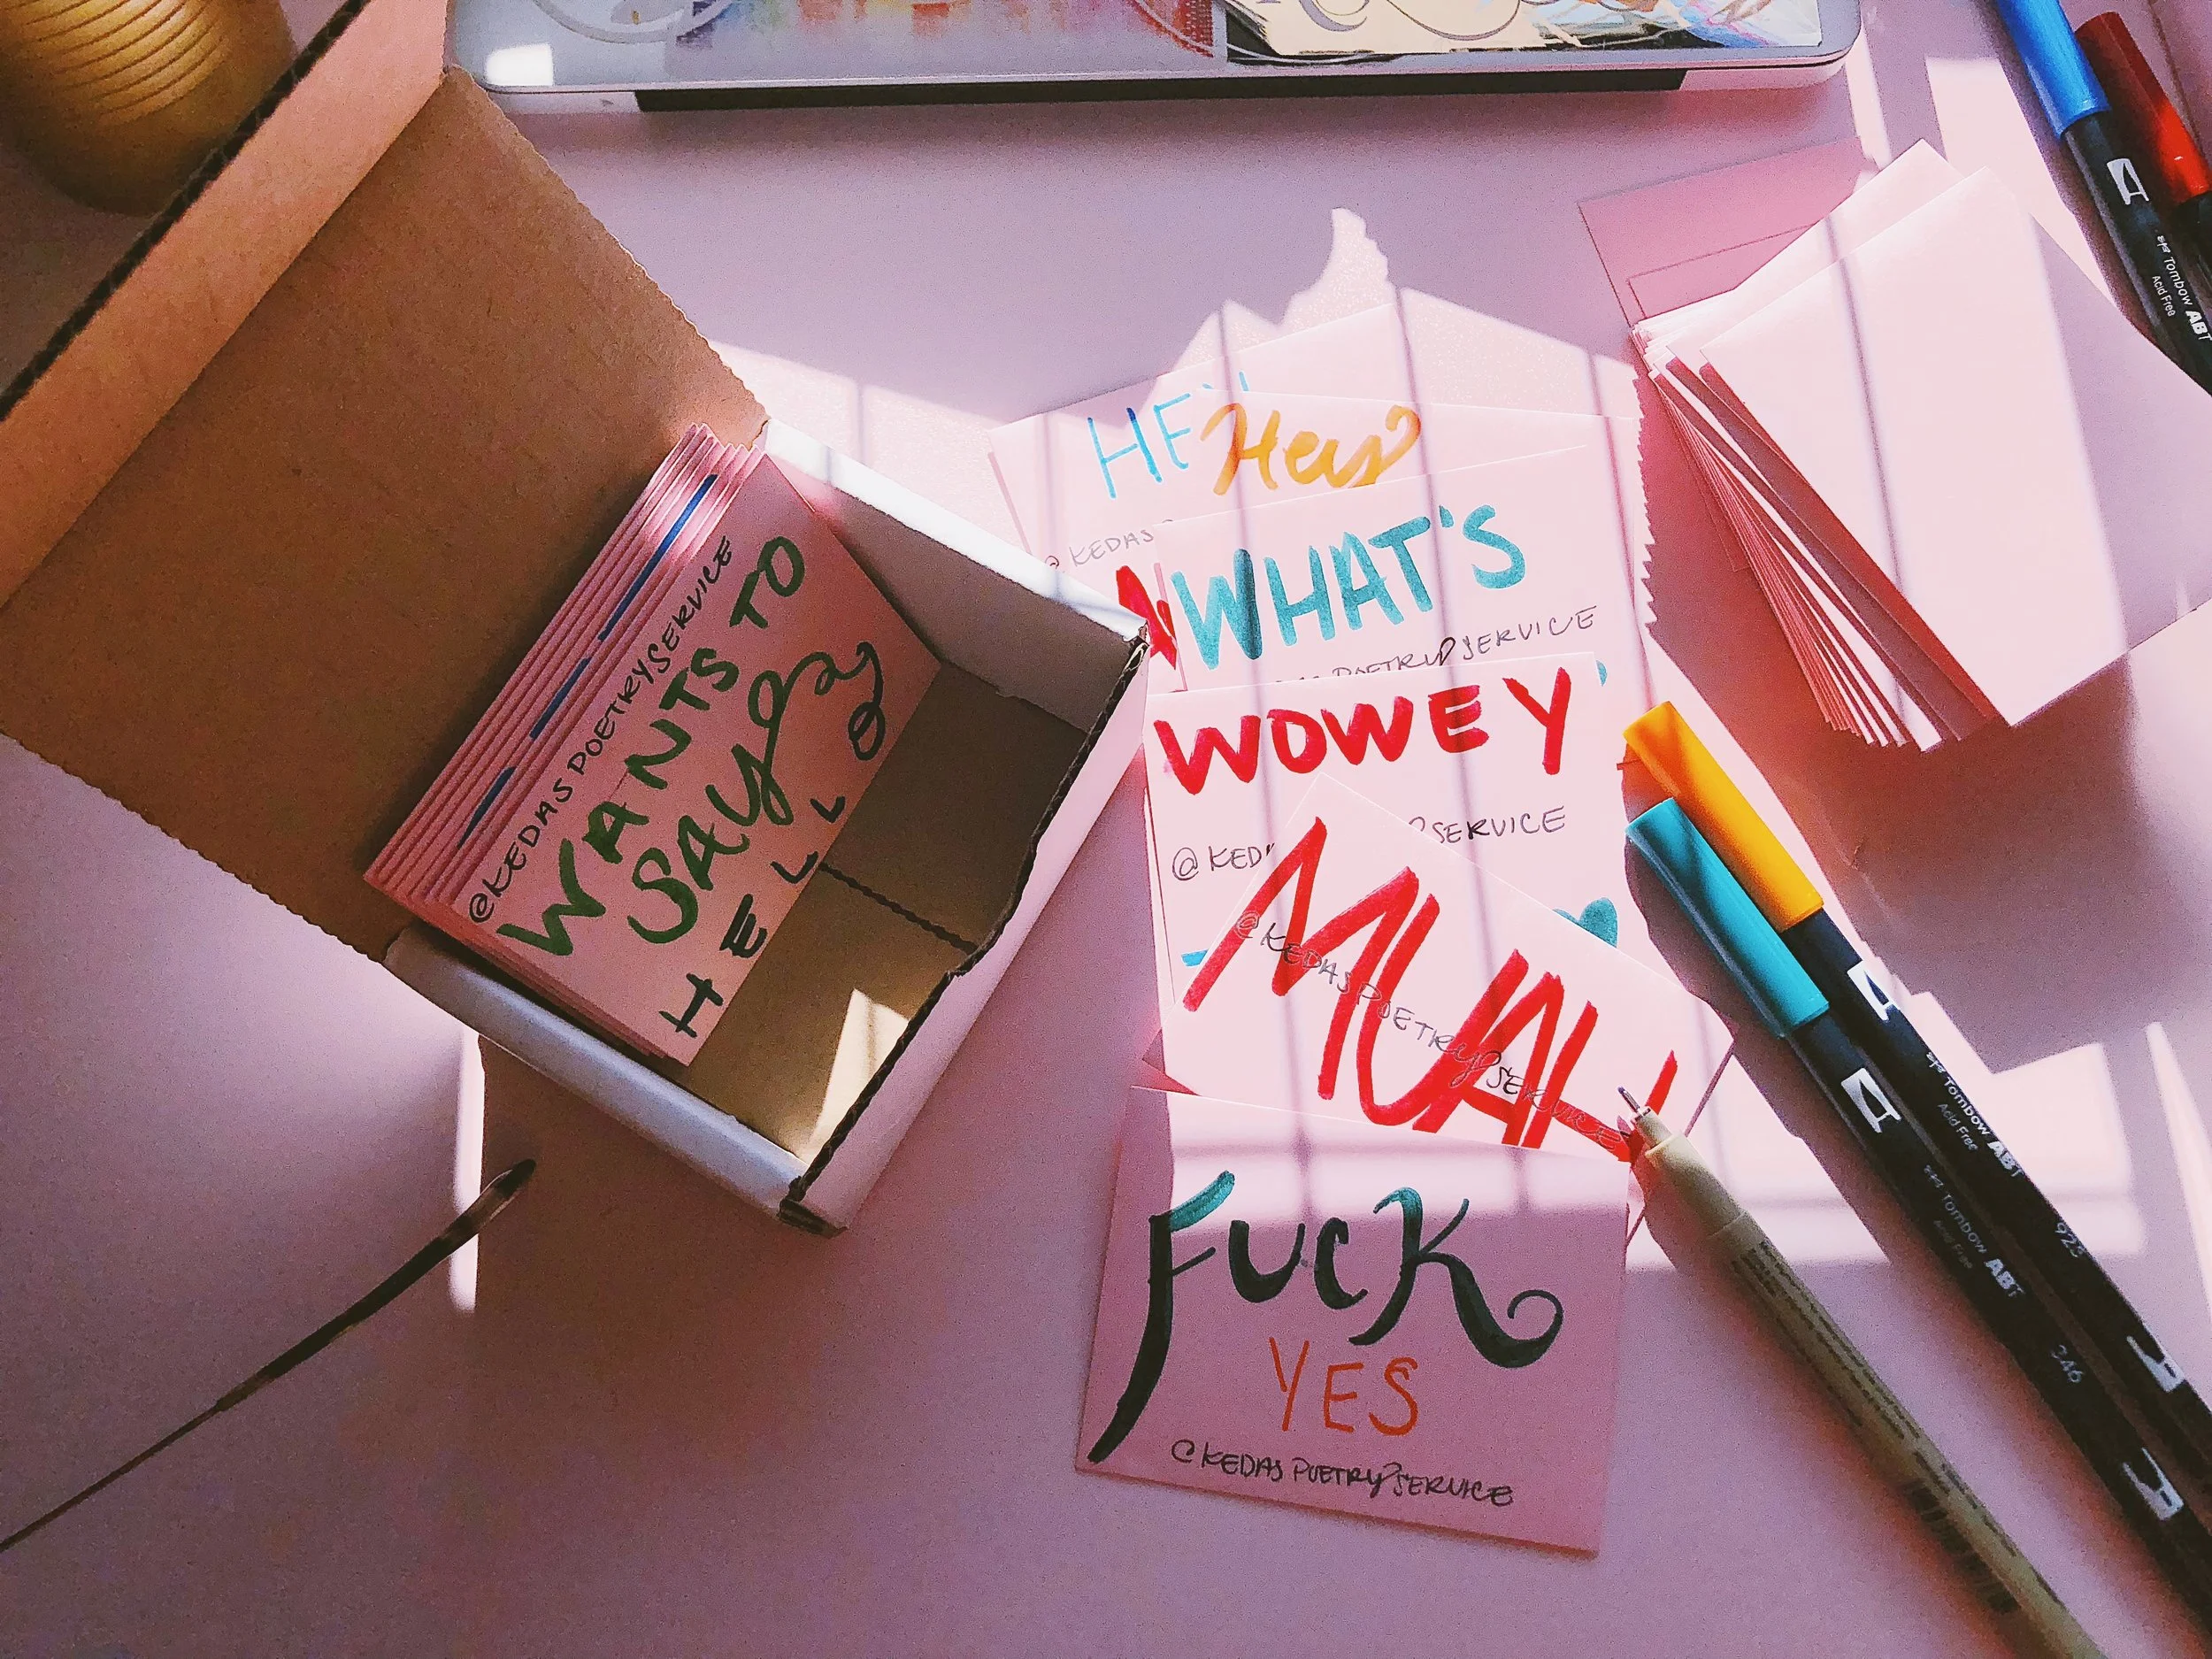 @KEDASPOETRYSERVICE
WANTS TO
SAY
HELLO
HEY
Hey
@KEDAS
WHAT'S
POETRY SERVICE
WOWEY
@KED
SERVICE
MUAH
@KEDASPOETRYSERVICE
FUCK
YES
@KEDASPOETRYSERVICE
Tombow ABT
Acid Free
Tombow ABT
Acid Free
925
Tombow ABT
Acid Free
346